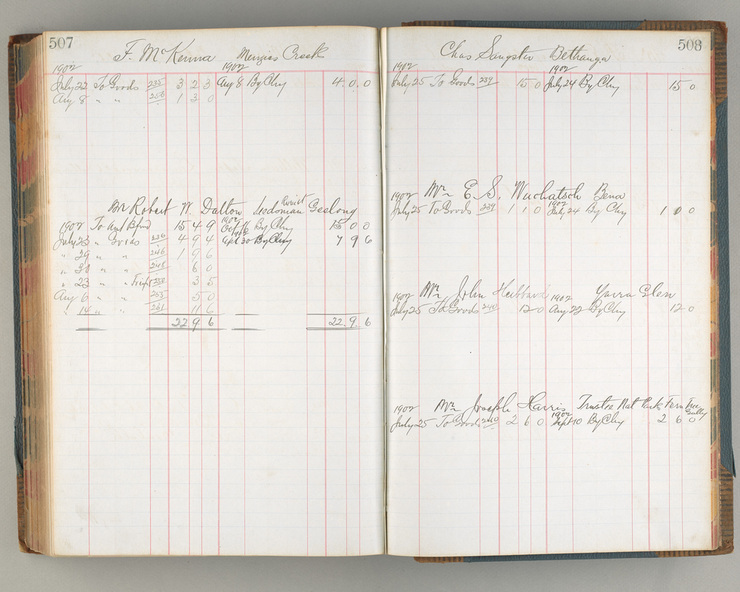 507
F. McKenna Merri Creek
1902 1902
July 22 To Goods 235 3 2 3 Aug 8 By Chq 4. 0. 0
Aug 8 " " 258 1 3 0
Mr Robert W. Dalton Geelong
1902 To Acct Bfwd 15 4 9 By Chq 15 0 0
July 23 " Goods 236 4 9 4 Sept 30 By Chq 7 9 6
" 29 " " 246 1 9 6
" 30 " " 248 6 0
" 23 " " 3 5
Aug 6 " " 5 0
" 14 " " 261 1 6
22 9 6 22. 9. 6
508
Chas Sangster Bethanga
1902 1902
July 25 To Goods 239 15 0 July 24 By Chq 15 0
1902 Mr E. S. Wuchatsch Bena
1902
July 25 To Goods 239 1 1 0 July 24 By Chq 1 1 0
1902 Mr John 1902 Yarra Glen
July 25 To Goods 240 12 0 Aug 22 By Chq 12 0
1902 Mr Joseph Harris Trustee Nat Park Fern Tree Gully
1902
July 25 To Goods 240 2 6 0 Sept 10 By Chq 2 6 0